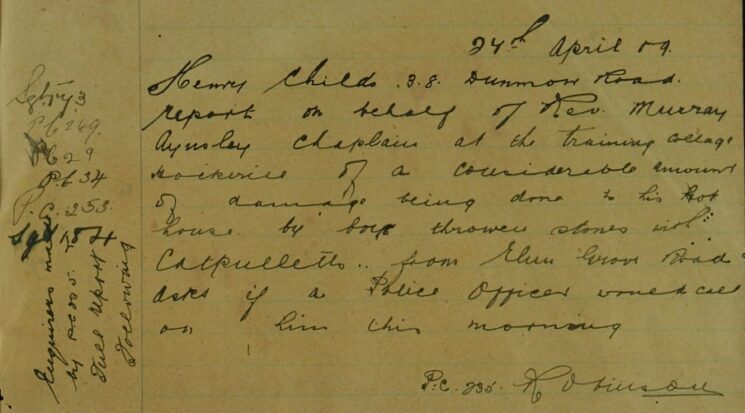 24th April 09.
Henry Childs. 38. Dunmow Road.
report on behalf of Rev. Murray
Aynsley Chaplain at the training collage
Hockerill of a considerable amount
of damage being done to his Hot
house by boys throwen stones with
Catpulletts.. from Elm Grove Road
asks if a Police Officer would call
on him this morning
P.C. 235. Robinson
P.C 249.
P.C 29
P.C 34
P.C. 253.
Enquiries made
by P.C
Full report
Following